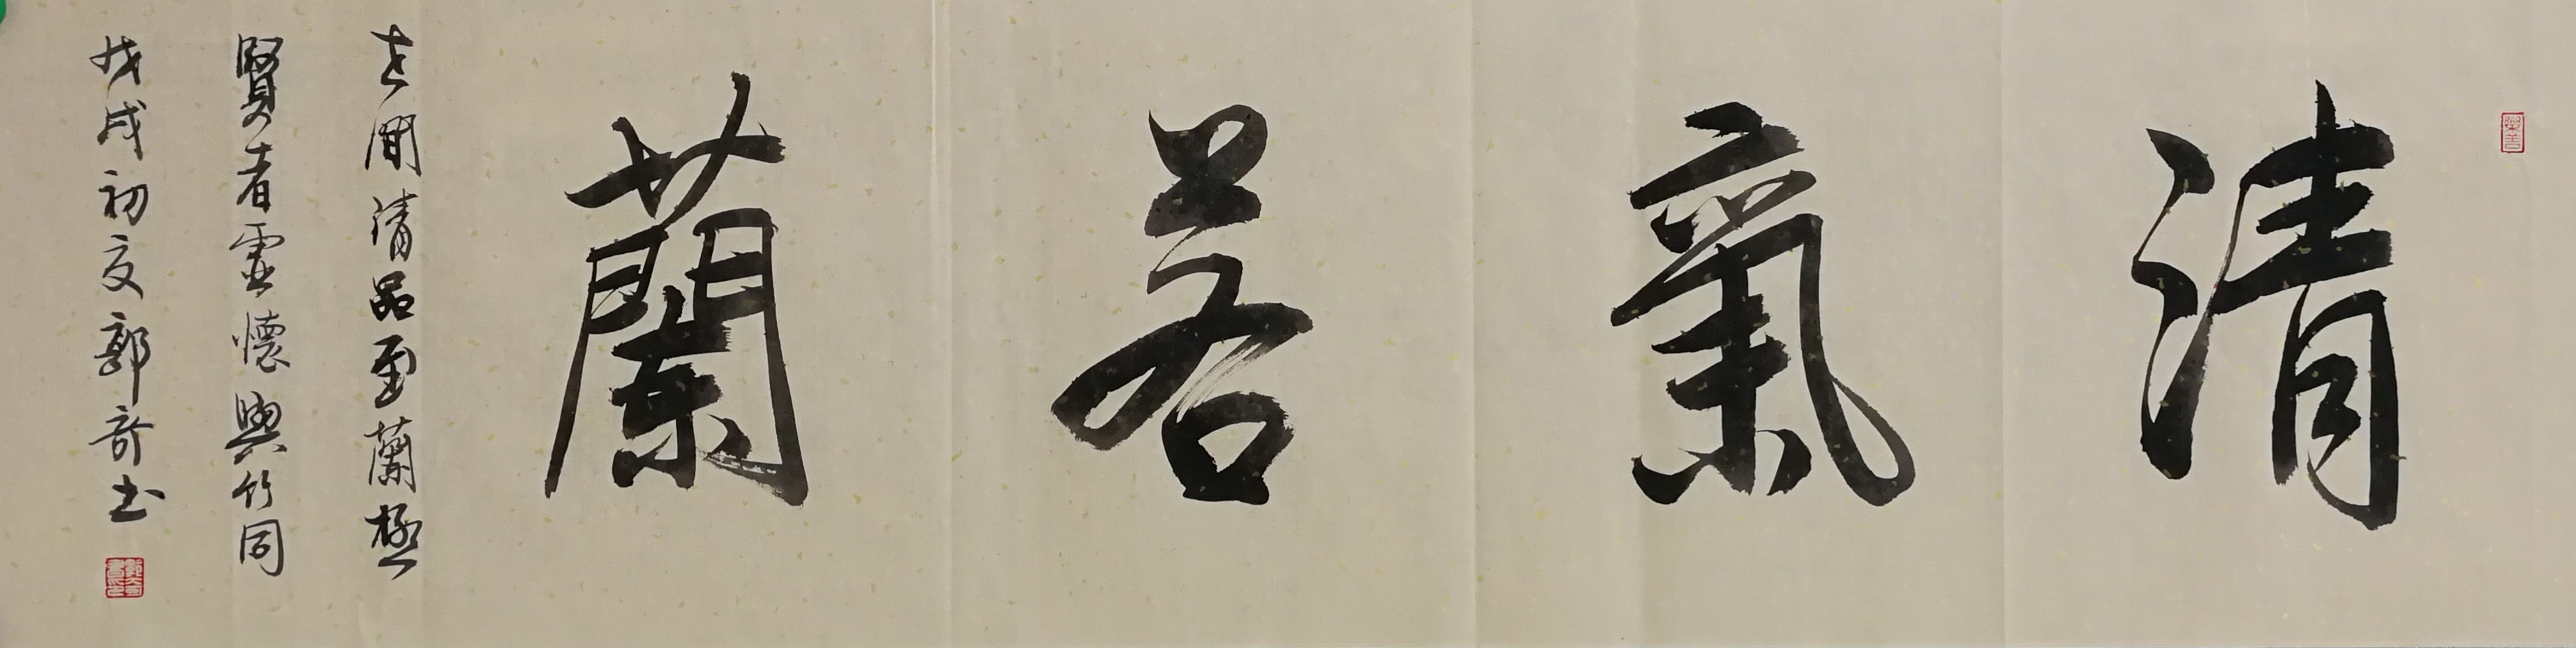 清氣若蘭
世間清品至蘭極
賢者虛懷與竹同
戊戌初夏郭奇書